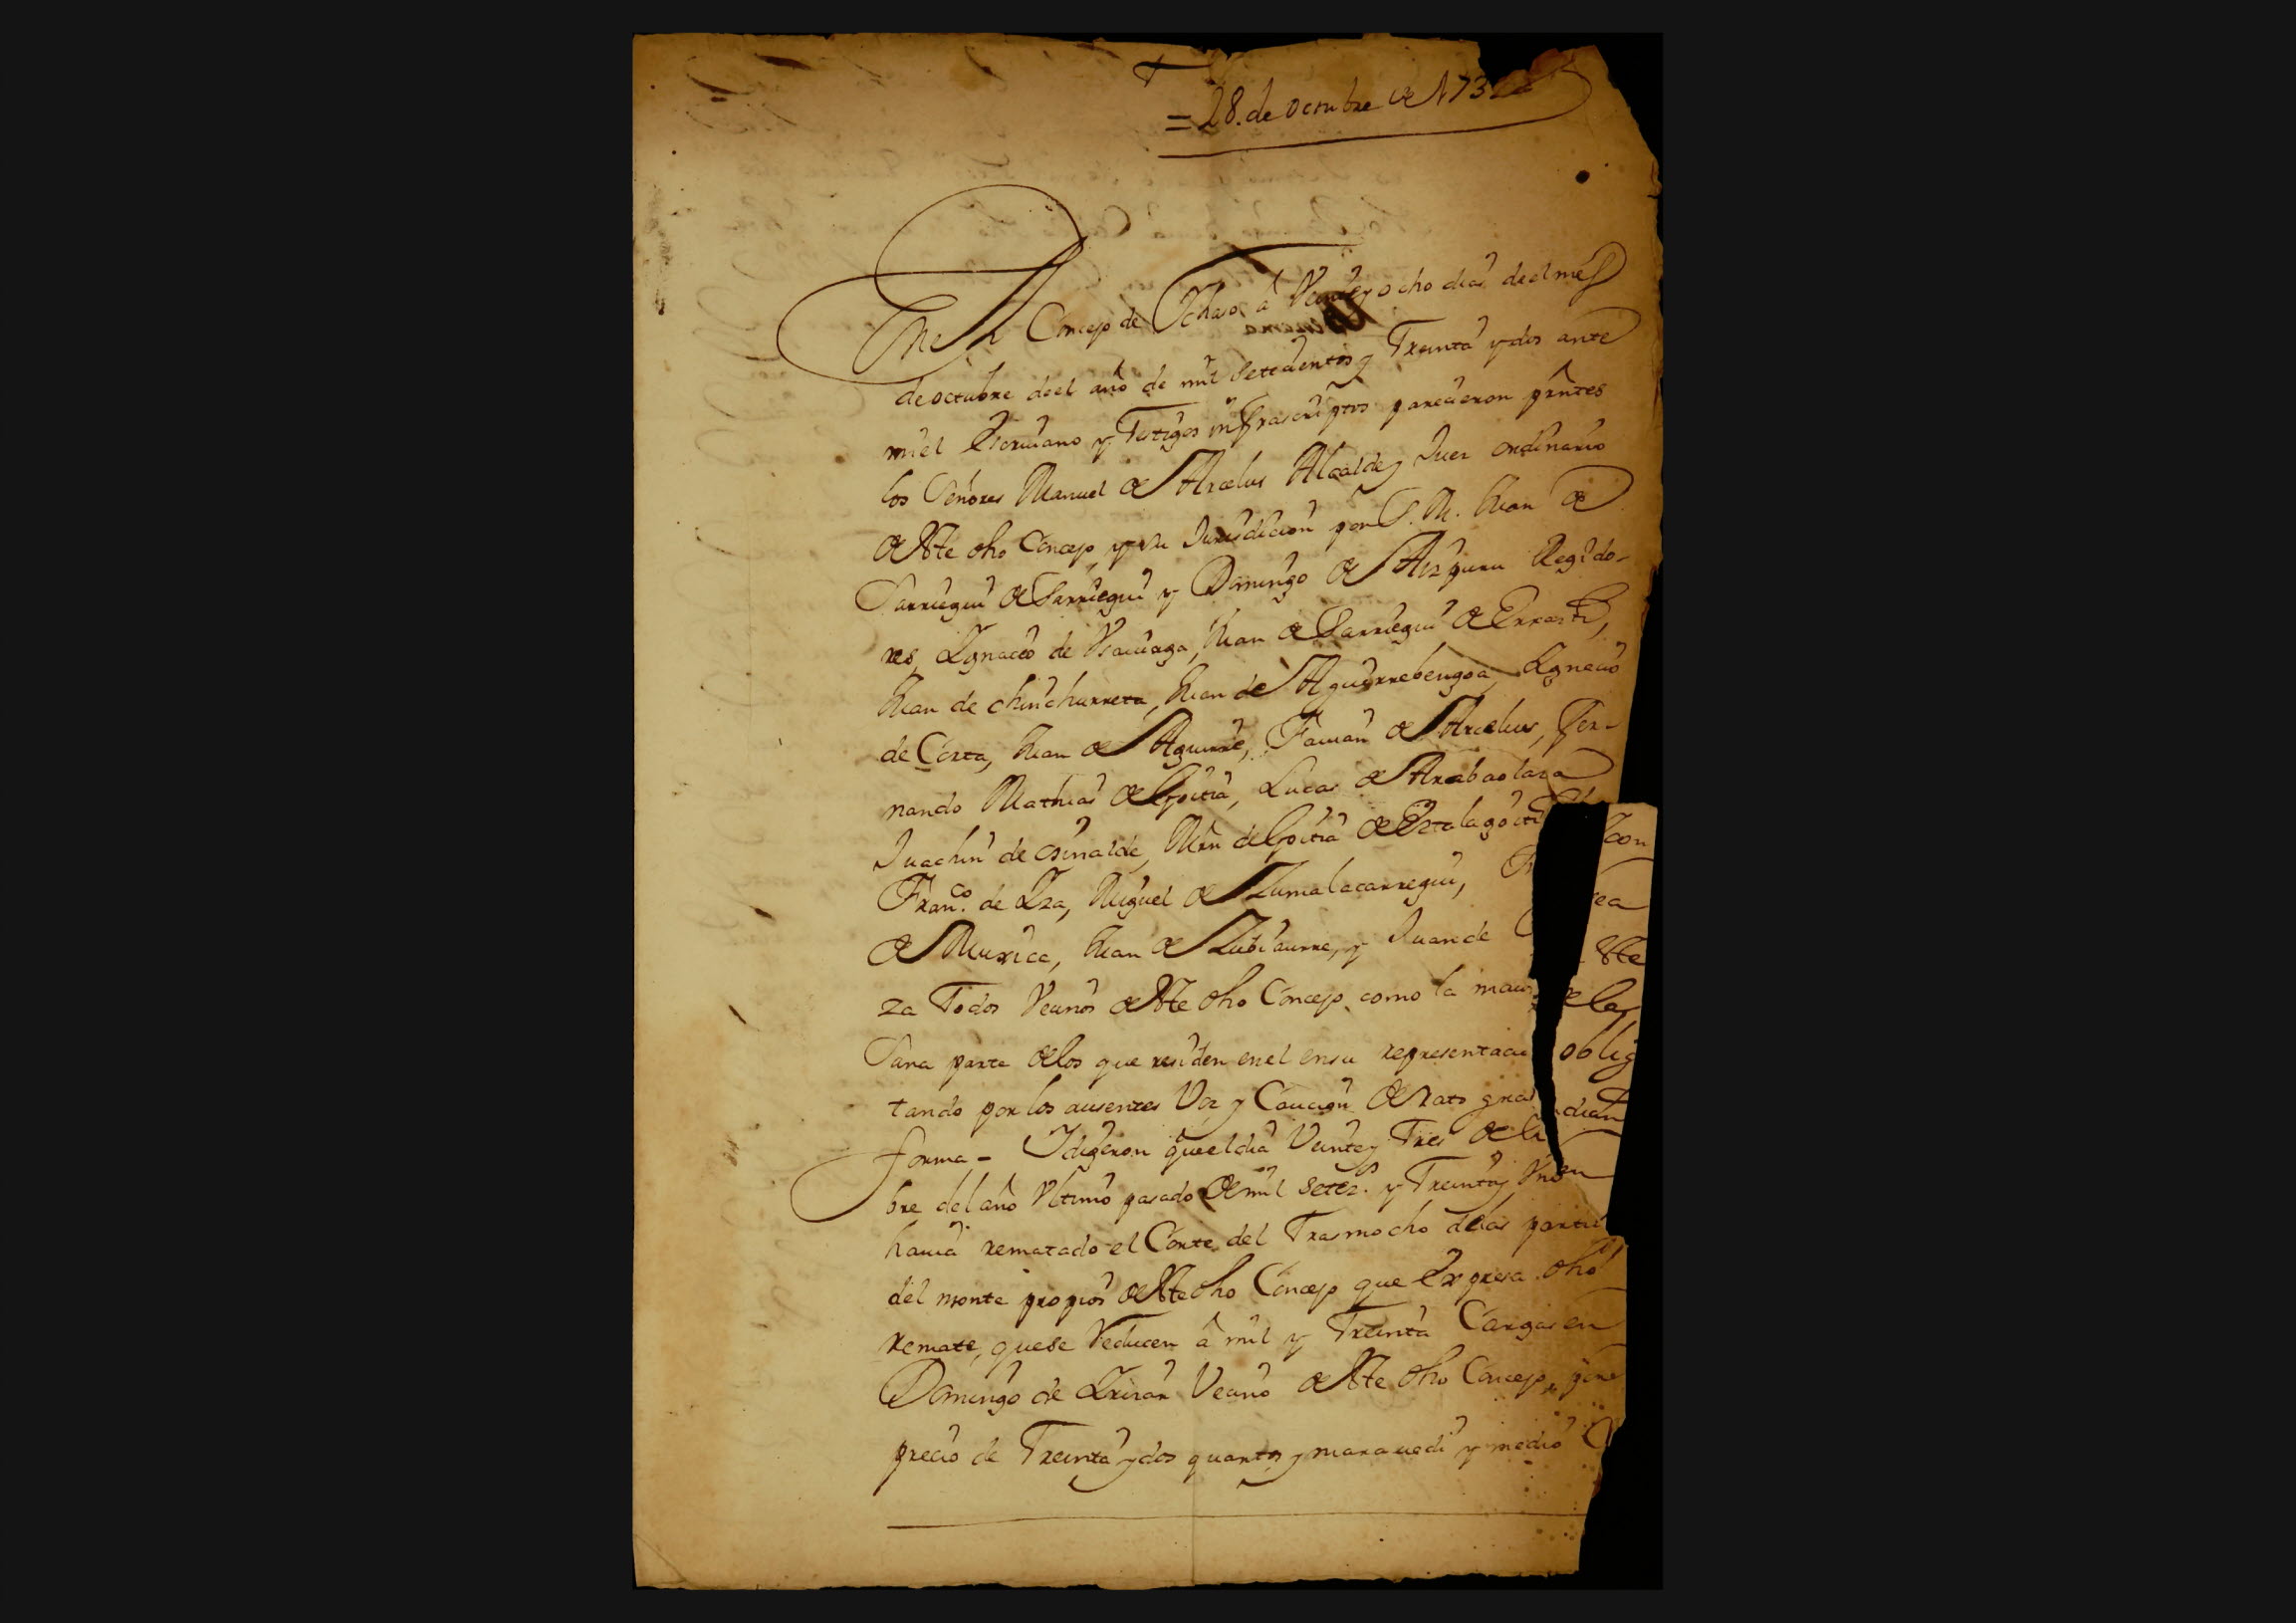 = 28. de octubre de 1732
En el Concejo de Ychaso, a Veinte y ocho dias de el mes
de octubre de el año de mil Setecientos y Treinta y dos ante
mi el Escriuano y Testigos infrascriptos parecieron press.tes
los Señores Manuel de Arcelus Alcalde y Juez ordinario
de este dho Concejo, y su Jurisdicion por S. M. Juan de
Sarriegui de Sarriegui y Domingo de Aizpuru Regido-
res, Ygnacio de Vsauiaga, Juan de Sarriegui de Errasti,
Juan de Chinchurreta, Juan de Aguirrebengoa, Ygnacio
de Corta, Juan de Aguirre, Fauian de Arcelus, Fer-
nando Mathias de Goitia, Lucas de Arabaolaza
Juachin de osinalde, Mrn de Goitia de Estalagoiti
Fran.co de Yza, Miguel de Zumalacarregui,
de Muxica, Juan de Zubiaurre, y Juan de
za Todos Vecinos de este dho Concejo, como la maior
Sana parte de los que residen en el en su representacion
tando por los ausentes Voz y Caucion de rato grato
forma - Y digeron que el dia Veinte y Tres de
bre del año Vltimo pasado de mil setez.os y Treinta y Vno
hauia rematado el Corte del Trasmocho de las partid
del monte propios de este dho Concejo que Expresa dho
remate, que se Reducen â mil y Treinta Cargas en
Domingo de Yrizar Vecino de este dho Concejo, por
precio de Treinta y dos quartos y marauedi y medio